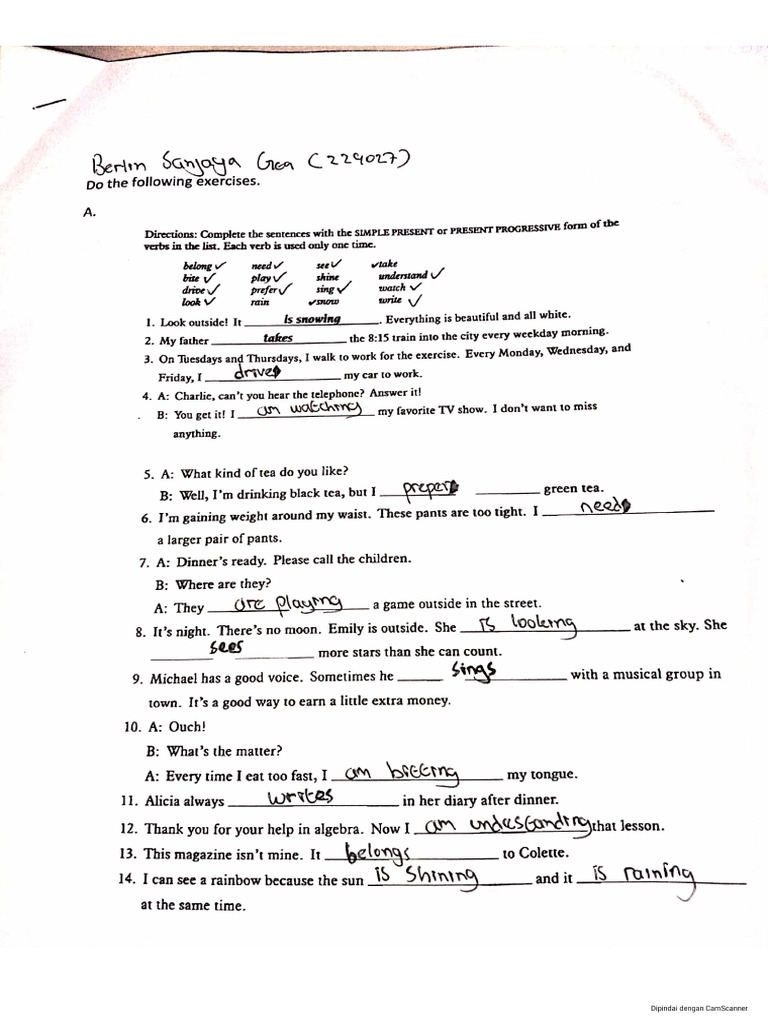 Berlin Sanjaya Gea (229027)
Do the following exercises.
A.
Directions: Complete the sentences with the SIMPLE PRESENT or PRESENT PROGRESSIVE form of the
verbs in the list. Each verb is used only one time.
belong ✓ need ✓ see ✓ ✓take
bite ✓ play ✓ shine understand ✓
drive ✓ prefer ✓ sing ✓ watch ✓
look ✓ rain ✓snow write ✓
1. Look outside! It is snowing. Everything is beautiful and all white.
2. My father takes the 8:15 train into the city every weekday morning.
3. On Tuesdays and Thursdays, I walk to work for the exercise. Every Monday, Wednesday, and
Friday, I drive my car to work.
4. A: Charlie, can't you hear the telephone? Answer it!
B: You get it! I am watching my favorite TV show. I don't want to miss
anything.
5. A: What kind of tea do you like?
B: Well, I'm drinking black tea, but I preper green tea.
6. I'm gaining weight around my waist. These pants are too tight. I need
a larger pair of pants.
7. A: Dinner's ready. Please call the children.
B: Where are they?
A: They are playing a game outside in the street.
8. It's night. There's no moon. Emily is outside. She is looking at the sky. She
sees more stars than she can count.
9. Michael has a good voice. Sometimes he sings with a musical group in
town. It's a good way to earn a little extra money.
10. A: Ouch!
B: What's the matter?
A: Every time I eat too fast, I am biteing my tongue.
11. Alicia always writes in her diary after dinner.
12. Thank you for your help in algebra. Now I am undestanding that lesson.
13. This magazine isn't mine. It belongs to Colette.
14. I can see a rainbow because the sun is shining and it is raining
at the same time.
Dipindai dengan CamScanner